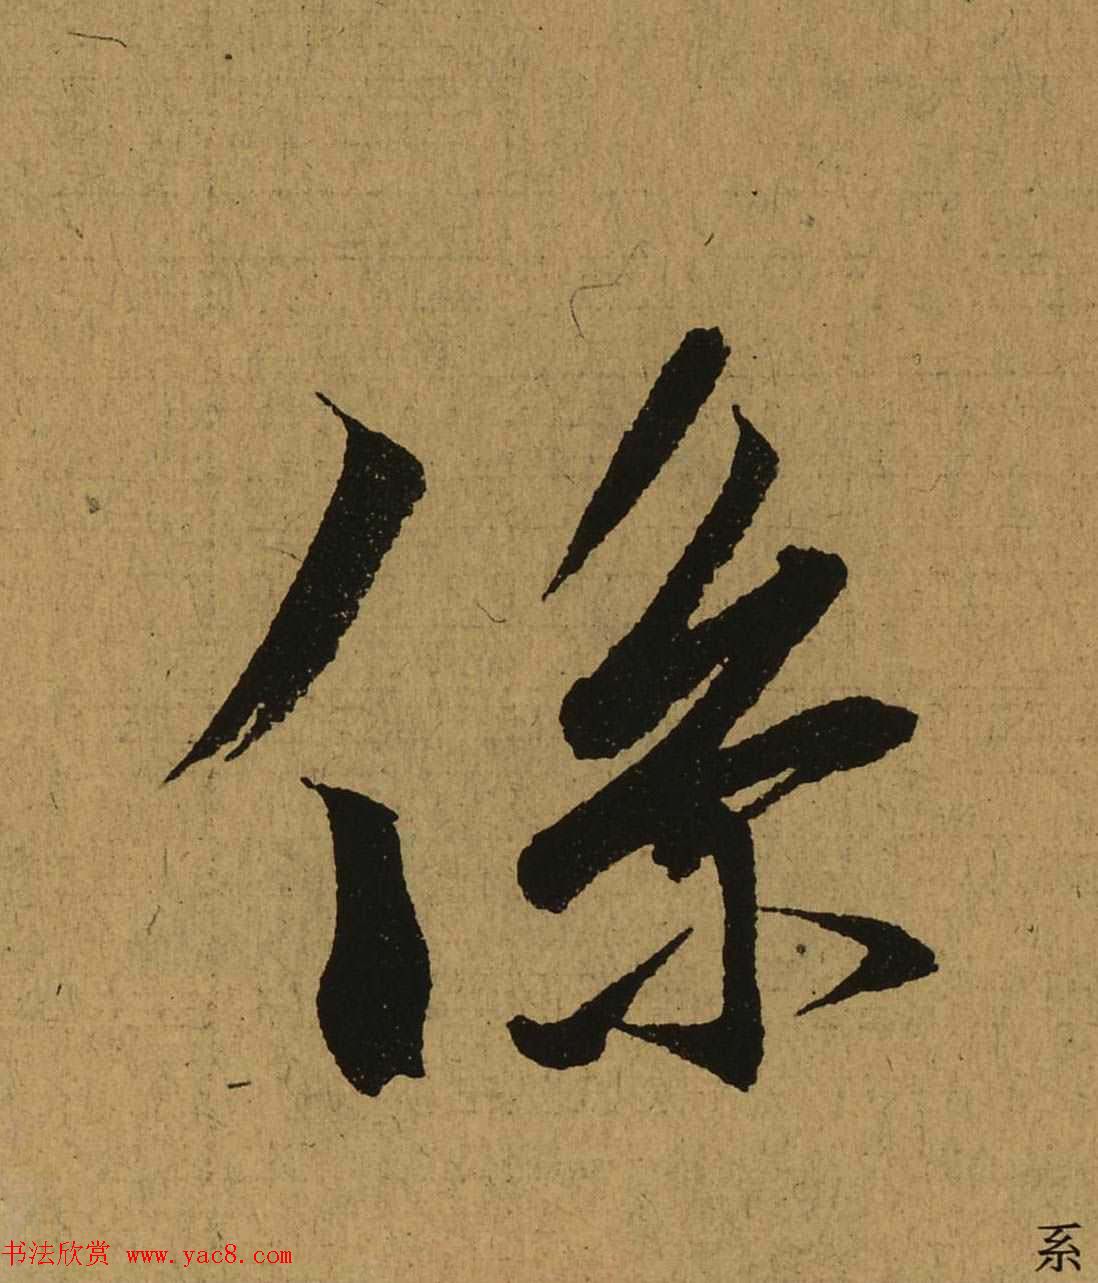 係
系
书法欣赏 www.yac8.com